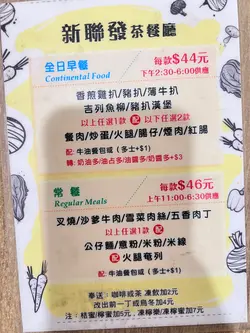 新聯發茶餐廳
全日早餐
每款$44元
Continental Food
下午2:30-6:00供應
香煎雞扒/豬扒/薄牛扒
吉列魚柳/豬扒漢堡
以上任選1款 配 以下任選2款
餐肉/炒蛋/火腿/腸仔/煙肉/紅腸
配 牛油餐包或 (多士+$1)
轉: 奶油多/油占多/油醬多/奶醬多+$3
常餐
每款$46元
Regular Meals
上午11:00-6:30供應
叉燒/沙爹牛肉/雪菜肉絲/五香肉丁
以上任選1款 配
公仔麵/意粉/米粉/米線
配 火腿奄列
配 牛油餐包或 (多士+$1)
奉送: 咖啡或茶 凍飲加2元
改出前一丁或烏冬加4元
注: 桔蜜/檸蜜加5元, 凍檸樂/凍檸蜜加7元